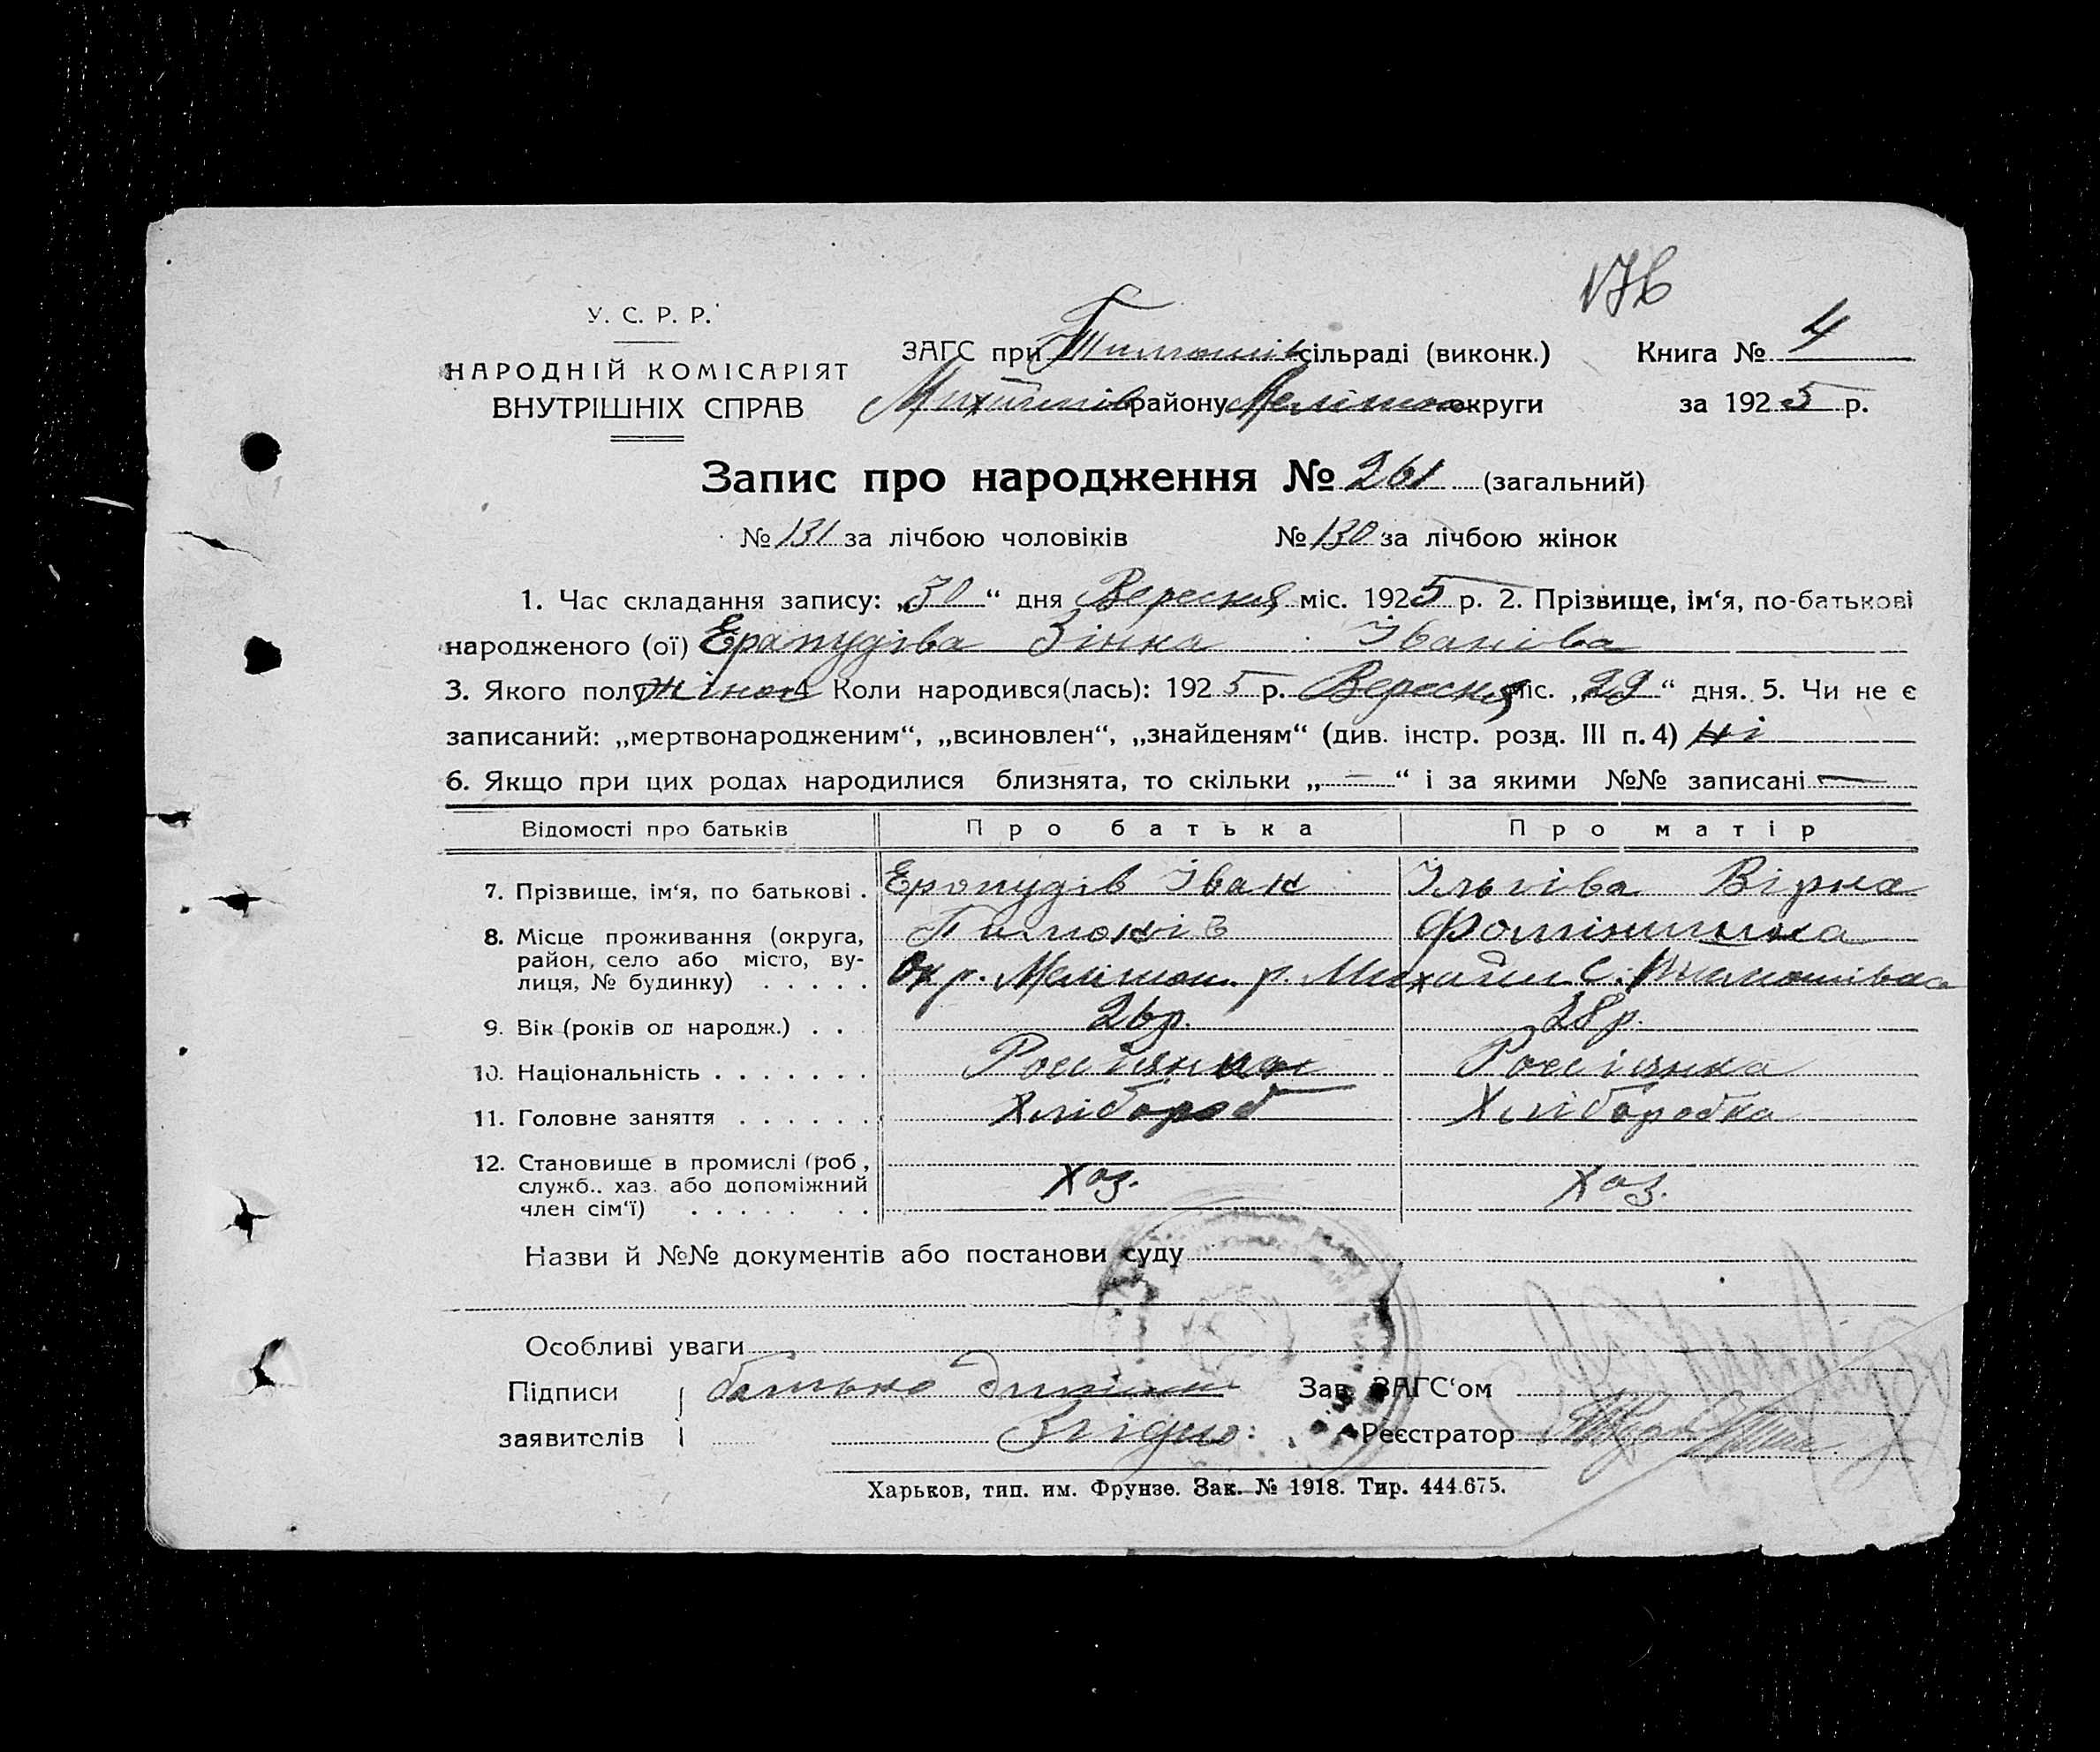 176
У. С. Р. Р.
НАРОДНІЙ КОМІСАРІЯТ
ВНУТРІШНІХ СПРАВ
ЗАГС при Тимошів сільраді (виконк.)
района Меліт округи
Книга № 4
за 1925 р.
Запис про народження № 261 (загальний)
№ 131 за лічбою чоловіків № 130 за лічбою жінок
1. Час складання запису: „30“ дня Вересня міс. 1925 р. 2. Прізвище, ім‘я, по-батькові
народженого (ої) Ерапудіва Зінка Іваніва
3. Якого полу жіноч 4. Коли народився(лась): 1925 р. Вересня міс. „29“ дня. 5. Чи не є
записаний: „мертвонародженим“, „всиновлен“, „знайденям“ (див. інстр. розд. III п. 4) Ні
6. Якщо при цих родах народилися близнята, то скільки „—“ і за якими №№ записані —
Відомості про батьків Про батька Про матір
7. Прізвище, ім‘я, по батькові . Еропудів Іван Ільгіва Вірка
8. Місце проживання (округа,
район, село або місто, ву-
лиця, № будинку) . . . . . Окр. Меліт р. Михайл С.
9. Вік (років од народж.) . . 26р. 28р.
10. Національність . . . . . . . Россіянка Россіянка
11. Головне заняття . . . . . . Хлібороб Хлібородка
12. Становище в промислі (роб,
служб.. хаз. або допоміжний
член сім‘ї) . . . . . . . Хаз. Хаз.
Назви й №№ документів або постанови суду
Особливі уваги
Підписи батько Зав. ЗАГС‘ом
заявителів Згідно: Реєстратор
Харьков, тип. им. Фрунзе. Зак. № 1918. Тир. 444.675.